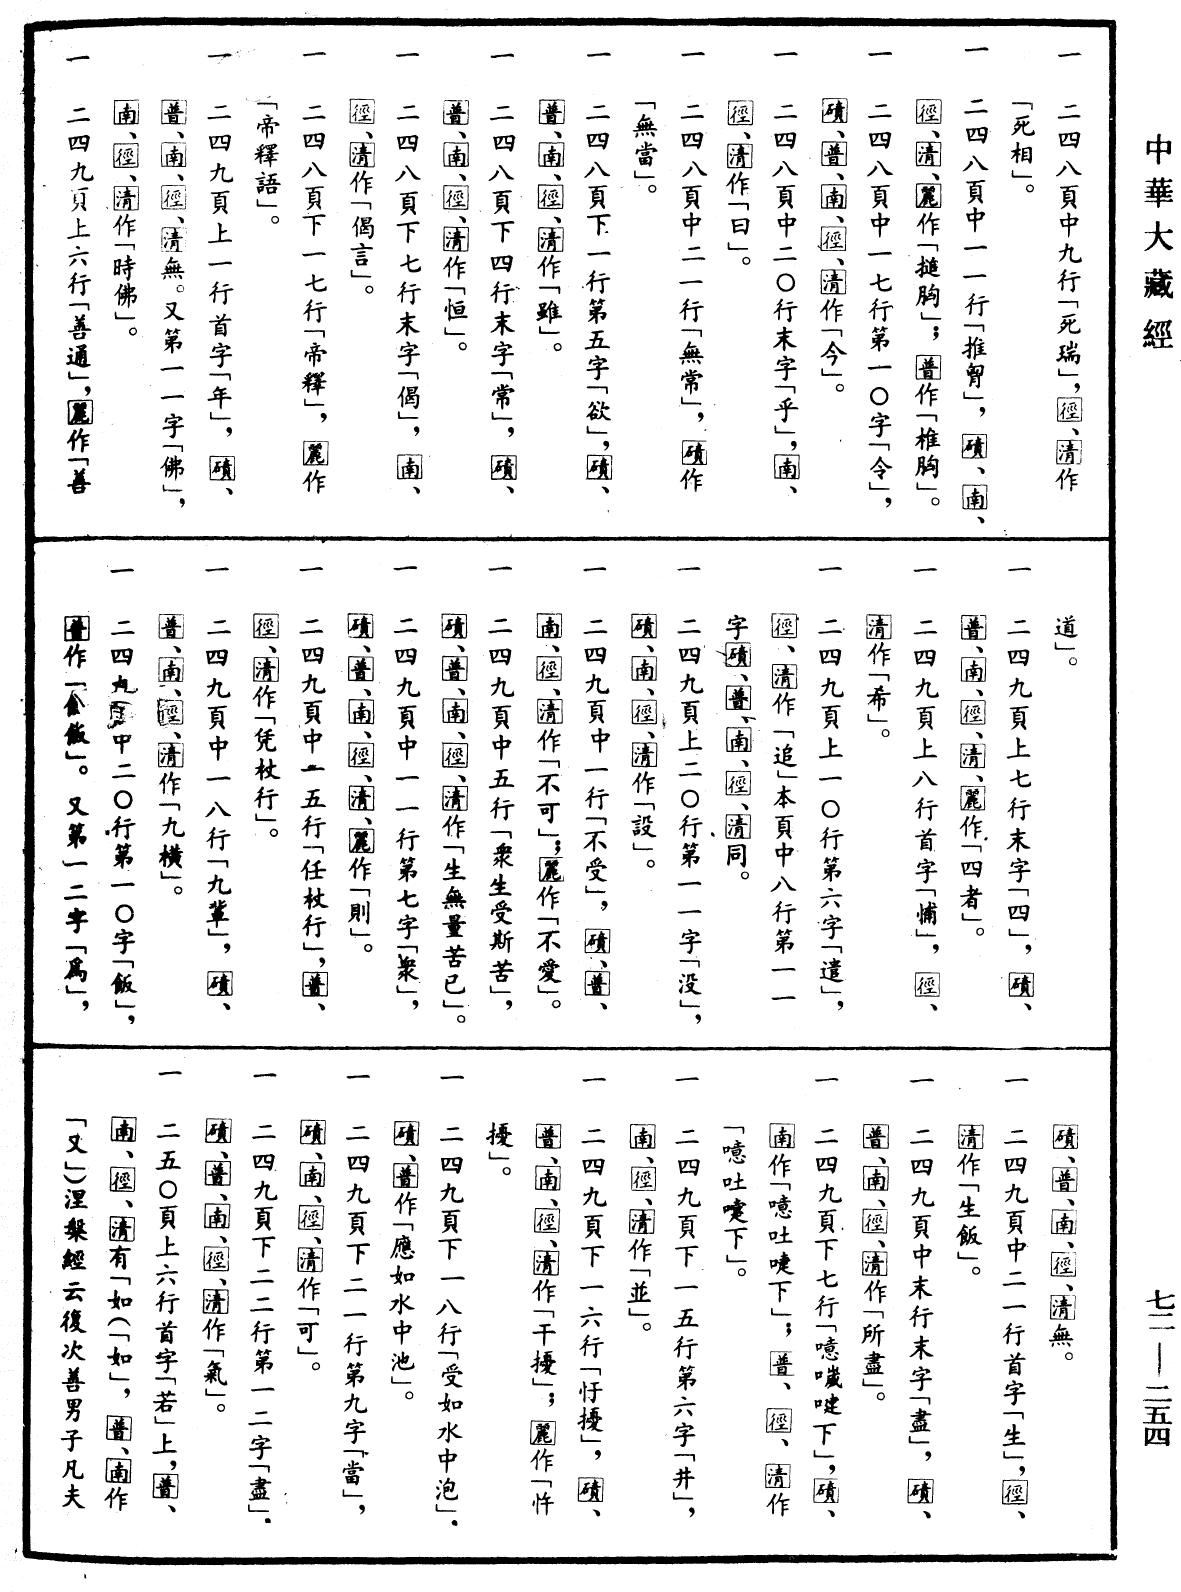 中華大藏經
一 二四八頁中九行「死瑞」，徑、清作
「死相」。
一 二四八頁中一一行「推胷」，磧、南、
徑、清、麗作「搥胸」；普作「椎胸」。
一 二四八頁中一七行第一〇字「令」，
磧、普、南、徑、清作「今」。
一 二四八頁中二〇行末字「乎」，南、
徑、清作「曰」。
一 二四八頁中二一行「無常」，磧作
「無當」。
一 二四八頁下一行第五字「欲」，磧、
普、南、徑、清作「雖」。
一 二四八頁下四行末字「常」，磧、
普、南、徑、清作「恒」。
一 二四八頁下七行末字「偈」，南、
徑、清作「偈言」。
一 二四八頁下一七行「帝釋」，麗作
「帝釋語」。
一 二四九頁上一行首字「年」，磧、
普、南、徑、清無。又第一一字「佛」，
南、徑、清作「時佛」。
一 二四九頁上六行「善通」，麗作「善
道」。
一 二四九頁上七行末字「四」，磧、
普、南、徑、清、麗作「四者」。
一 二四九頁上八行首字「悕」，徑、
清作「希」。
一 二四九頁上一〇行第六字「遣」，
徑、清作「追」本頁中八行第一一
字磧、普、南、徑、清同。
一 二四九頁上二〇行第一一字「没」，
磧、南、徑、清作「設」。
一 二四九頁中一行「不受」，磧、普、
南、徑、清作「不可」；麗作「不愛」。
一 二四九頁中五行「衆生受斯苦」，
磧、普、南、徑、清作「生無量苦已」。
一 二四九頁中一一行第七字「衆」，
磧、普、南、徑、清、麗作「則」。
一 二四九頁中一五行「任杖行」，普、
徑、清作「凭杖行」。
一 二四九頁中一八行「九輩」，磧、
普、南、徑、清作「九横」。
一 二四九頁中二〇行第一〇字「飯」，
普作「飯」。又第一二字「爲」，
磧、普、南、徑、清無。
一 二四九頁中二一行首字「生」，徑、
清作「生飯」。
一 二四九頁中末行末字「盡」，磧、
普、南、徑、清作「所盡」。
一 二四九頁下七行「噫噦啑下」，磧、
南作「噫吐啑下」；普、徑、清作
「噫吐嚏下」。
一 二四九頁下一五行第六字「井」，
南、徑、清作「並」。
一 二四九頁下一六行「忓擾」，磧、
普、南、徑、清作「干擾」；麗作「忤
擾」。
一 二四九頁下一八行「受如水中泡」，
磧、普作「應如水中池」。
一 二四九頁下二一行第九字「當」，
磧、南、徑、清作「可」。
一 二四九頁下二二行第一二字「盡」，
磧、普、南、徑、清作「氣」。
一 二五〇頁上六行首字「若」上，普、
南、徑、清有「如（「如」，普、南作
「又」）涅槃經云復次善男子凡夫
七二——二五四